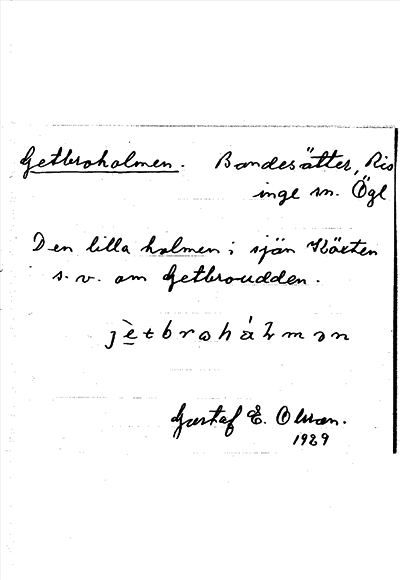 Getbroholmen. Bondesätter, Ris
inge sn. Ögl
Den lilla holmen i sjön
s.v. om Getbroudden.
Gustaf E. Olsson.
1929